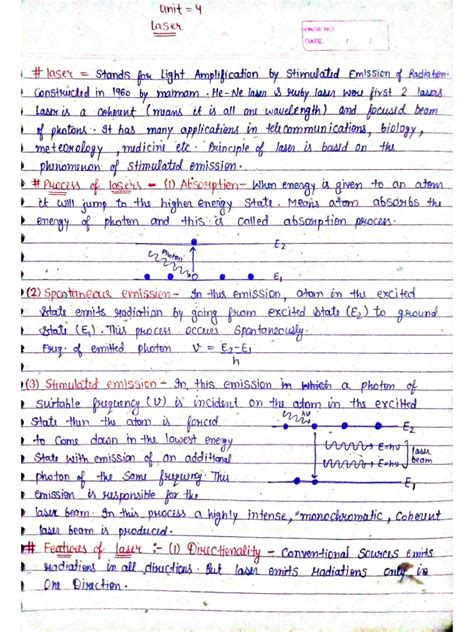 Unit = 4
Laser
DATE
# laser = Stands for Light Amplification by Stimulated Emission of Radiation.
Constructed in 1960 by maimam. He-Ne laser & ruby laser were first 2 lasers
Laser is a coherent (means it is all one wavelength) and focused beam
of photons. It has many applications in telecommunications, biology,
meteorology, medicine etc. Principle of laser is based on the
phenomenon of stimulated emission.
# Process of lasers - (1) Absorption - When energy is given to an atom
it will jump to the higher energy state. Means atom absorbs the
energy of photon and this is called absorption process.
E2
Photon
E1
(2) Spontaneous emission - In this emission, atom in the excited
state emits radiation by going from excited state (E2) to ground
state (E1). This process occurs spontaneously.
Freq. of emitted photon ν = E2-E1
h
(3) Stimulated emission - In this emission in which a photon of
suitable frequency (ν) is incident on the atom in the excited
state then the atom is forced
to come down in the lowest energy
state with emission of an additional
photon of the same frequency. This
emission is responsible for the
hν
E2
E=hν
E=hν
laser
beam
E1
laser beam. In this process a highly intense, monochromatic, coherent
laser beam is produced.
# Features of laser :- (1) Directionality - Conventional sources emits
radiations in all directions. But laser emits radiations only in
one direction.